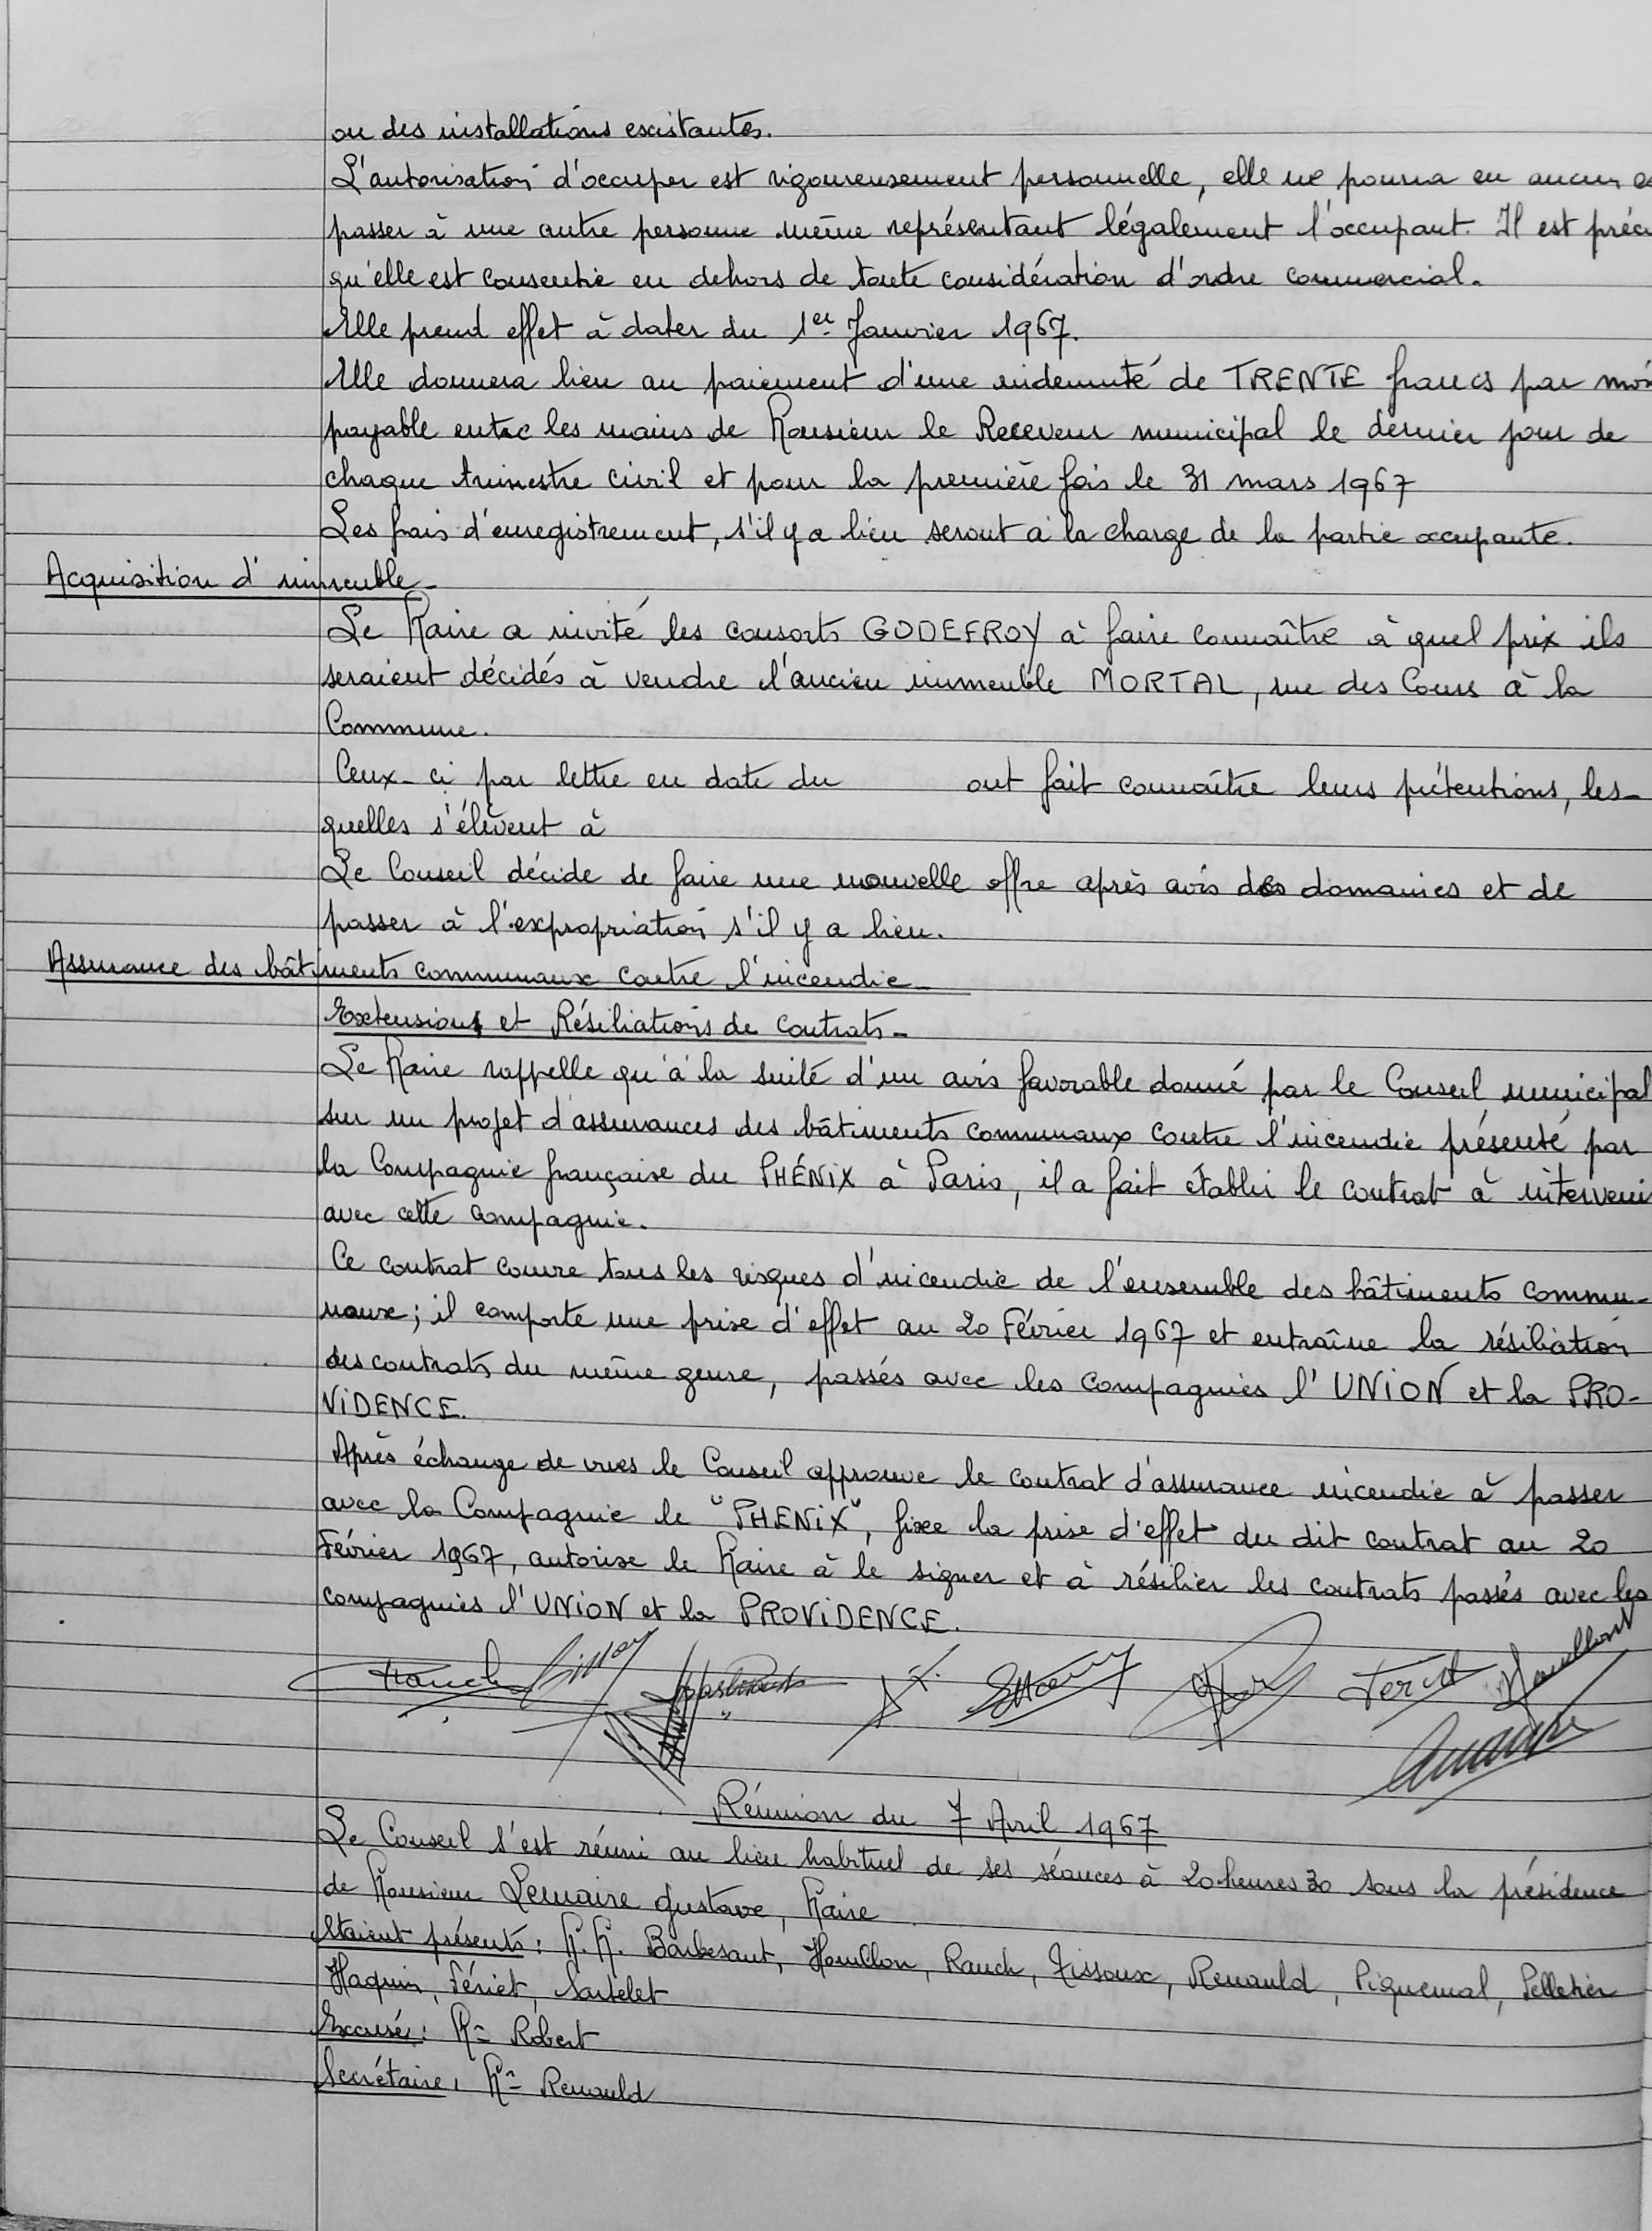 ou des installations existantes.
L'autorisation d'occuper est rigoureusement personnelle, elle ne pourra en aucun
passer à une autre personne même représentant légalement l'occupant. Il est préci
qu'elle est consentie en dehors de toute considération d'ordre commercial.
Elle prend effet à dater du 1er Janvier 1967.
Elle donnera lieu au paiement d'une indemnité de TRENTE francs par moi
payable entre les mains de Monsieur le Receveur municipal le dernier jour de
chaque trimestre civil et pour la première fois le 31 mars 1967
Les frais d'enregistrement, s'il y a lieu seront à la charge de la partie occupante.
Acquisition d'immeuble -
Le Maire a invité les consorts GODEFROY à faire connaître à quel prix ils
seraient décidés à vendre l'ancien immeuble MORTAL, rue des Cours à la
Commune.
Ceux-ci par lettre en date du ont fait connaître leurs prétentions, les-
quelles s'élèvent à
Le Conseil décide de faire une nouvelle offre après avis des domaines et de
passer à l'expropriation s'il y a lieu.
Assurance des bâtiments communaux contre l'incendie -
Extensions et Résiliations de contrats -
Le Maire rappelle qu'à la suite d'un avis favorable donné par le Conseil municipal
sur un projet d'assurances des bâtiments communaux contre l'incendie présenté par
la Compagnie française du PHÉNIX à Paris, il a fait établir le contrat à intervenir
avec cette compagnie.
Ce contrat couvre tous les risques d'incendie de l'ensemble des bâtiments commu-
naux; il comporte une prise d'effet au 20 Février 1967 et entraîne la résiliation
des contrats du même genre, passés avec les Compagnies l'UNION et la PRO-
VIDENCE.
Après échange de vues le Conseil approuve le contrat d'assurance incendie à passer
avec la Compagnie le "PHENIX", fixe la prise d'effet du dit contrat au 20
Février 1967, autorise le Maire à le signer et à résilier les contrats passés avec les
compagnies l'UNION et la PROVIDENCE.
Réunion du 7 Avril 1967
Le Conseil s'est réuni au lieu habituel de ses séances à 20 heures 30 sous la présidence
de Monsieur Lemaire Gustave, Maire
Etaient présents : M.M. Barbesant, Houllon, Rauch, Tissoux, Renauld, Piquemal, Pelletier
Haquin, Fériet, Sartelet
Excusé : Mr Robert
Secrétaire : Mr Renauld